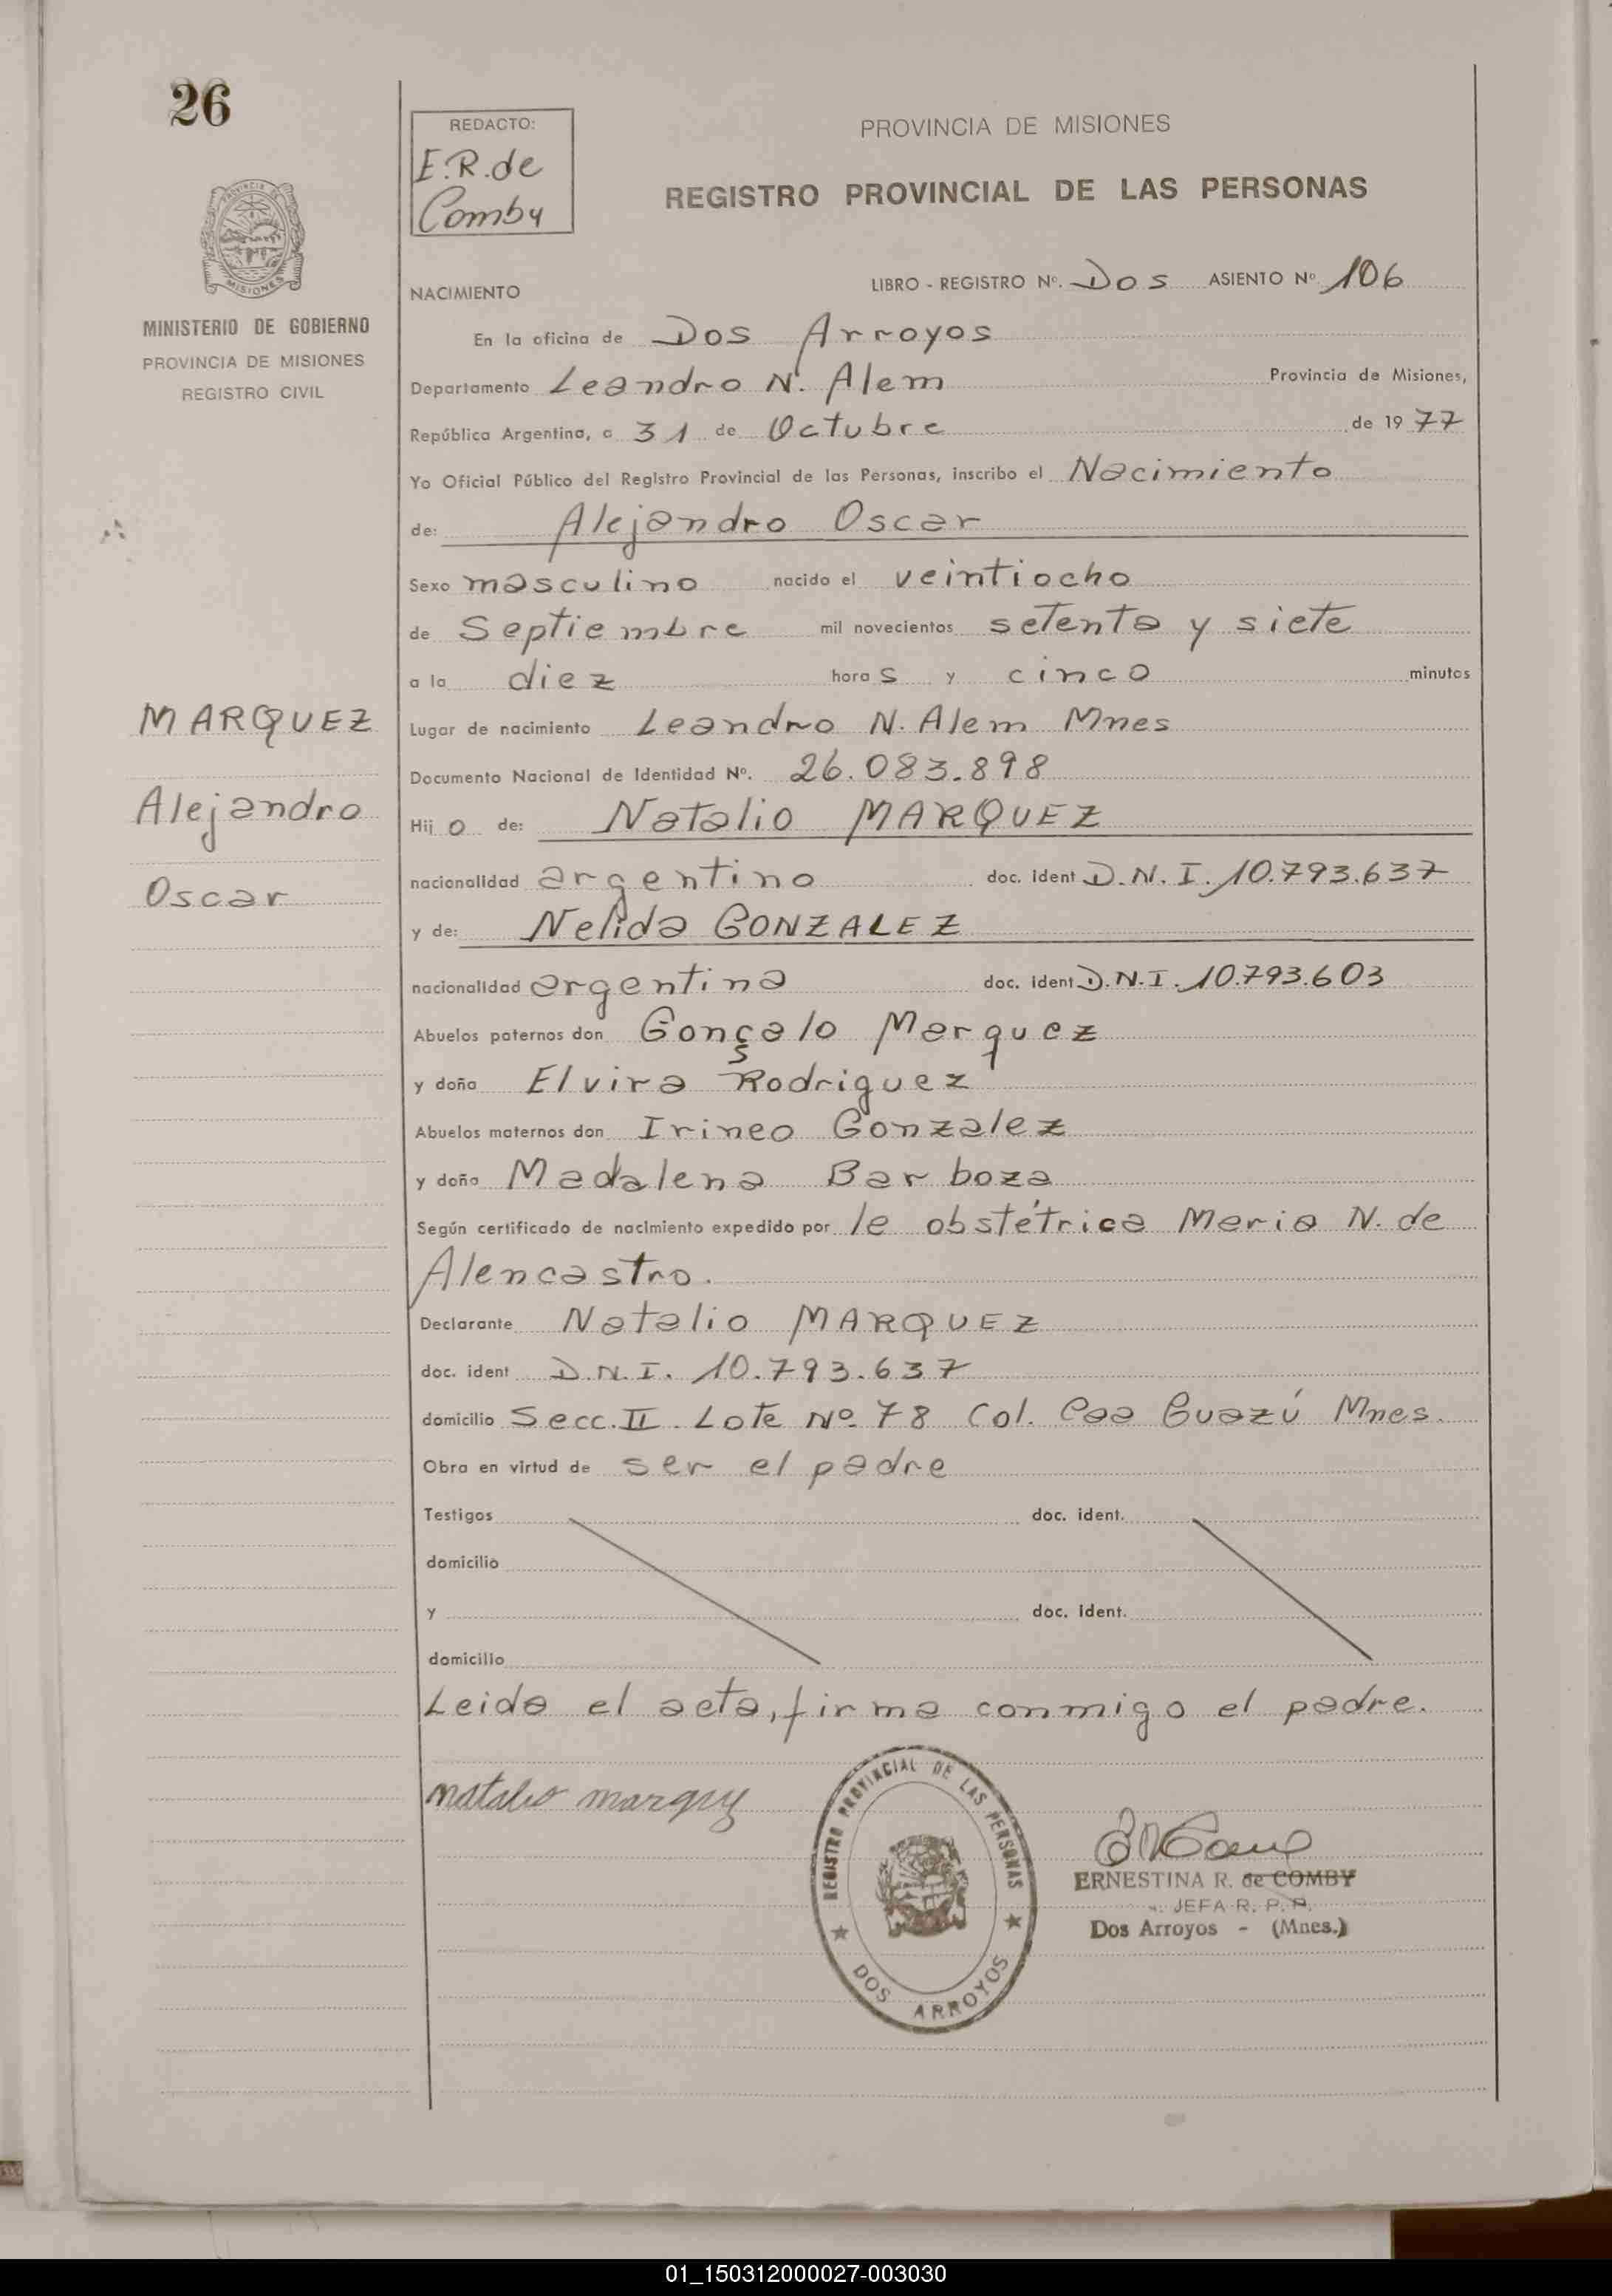 26
REDACTO:
E.R. de
Comby
PROVINCIA DE MISIONES
REGISTRO PROVINCIAL DE LAS PERSONAS
PROVINCIA DE
MISIONES
MINISTERIO DE GOBIERNO
PROVINCIA DE MISIONES
REGISTRO CIVIL
MARQUEZ
Alejandro
Oscar
NACIMIENTO
LIBRO - REGISTRO Nº. Dos ASIENTO Nº 106
En la oficina de Dos Arroyos
Departamento Leandro N. Alem Provincia de Misiones,
República Argentina, a 31 de Octubre de 1977
Yo Oficial Público del Registro Provincial de las Personas, inscribo el Nacimiento
de: Alejandro Oscar
Sexo masculino nacido el veintiocho
de Septiembre mil novecientos setenta y siete
a la diez horas y cinco minutos
Lugar de nacimiento Leandro N. Alem Mnes
Documento Nacional de Identidad Nº. 26.083.898
Hijo de: Natalio MARQUEZ
nacionalidad argentino doc. ident D.N.I. 10.793.637
y de: Nelida GONZALEZ
nacionalidad argentina doc. ident D.N.I. 10.793.603
Abuelos paternos don Gonçalo Marquez
y doña Elvira Rodriguez
Abuelos maternos don Irineo Gonzalez
y doña Madalena Barboza
Según certificado de nacimiento expedido por la obstétrica Maria N. de
Alencastro.
Declarante Natalio MARQUEZ
doc. ident D.N.I. 10.793.637
domicilio Secc. II Lote Nº 78 Col. Caa Guazú Mnes.
Obra en virtud de ser el padre
Testigos doc. ident.
domicilio
y doc. ident.
domicilio
Leida el acta, firma conmigo el padre.
natalio marquez
REGISTRO PROVINCIAL DE LAS PERSONAS
DOS ARROYOS
ERNESTINA R. de COMBY
JEFA R. P. P.
Dos Arroyos - (Mnes.)
01_150312000027-003030